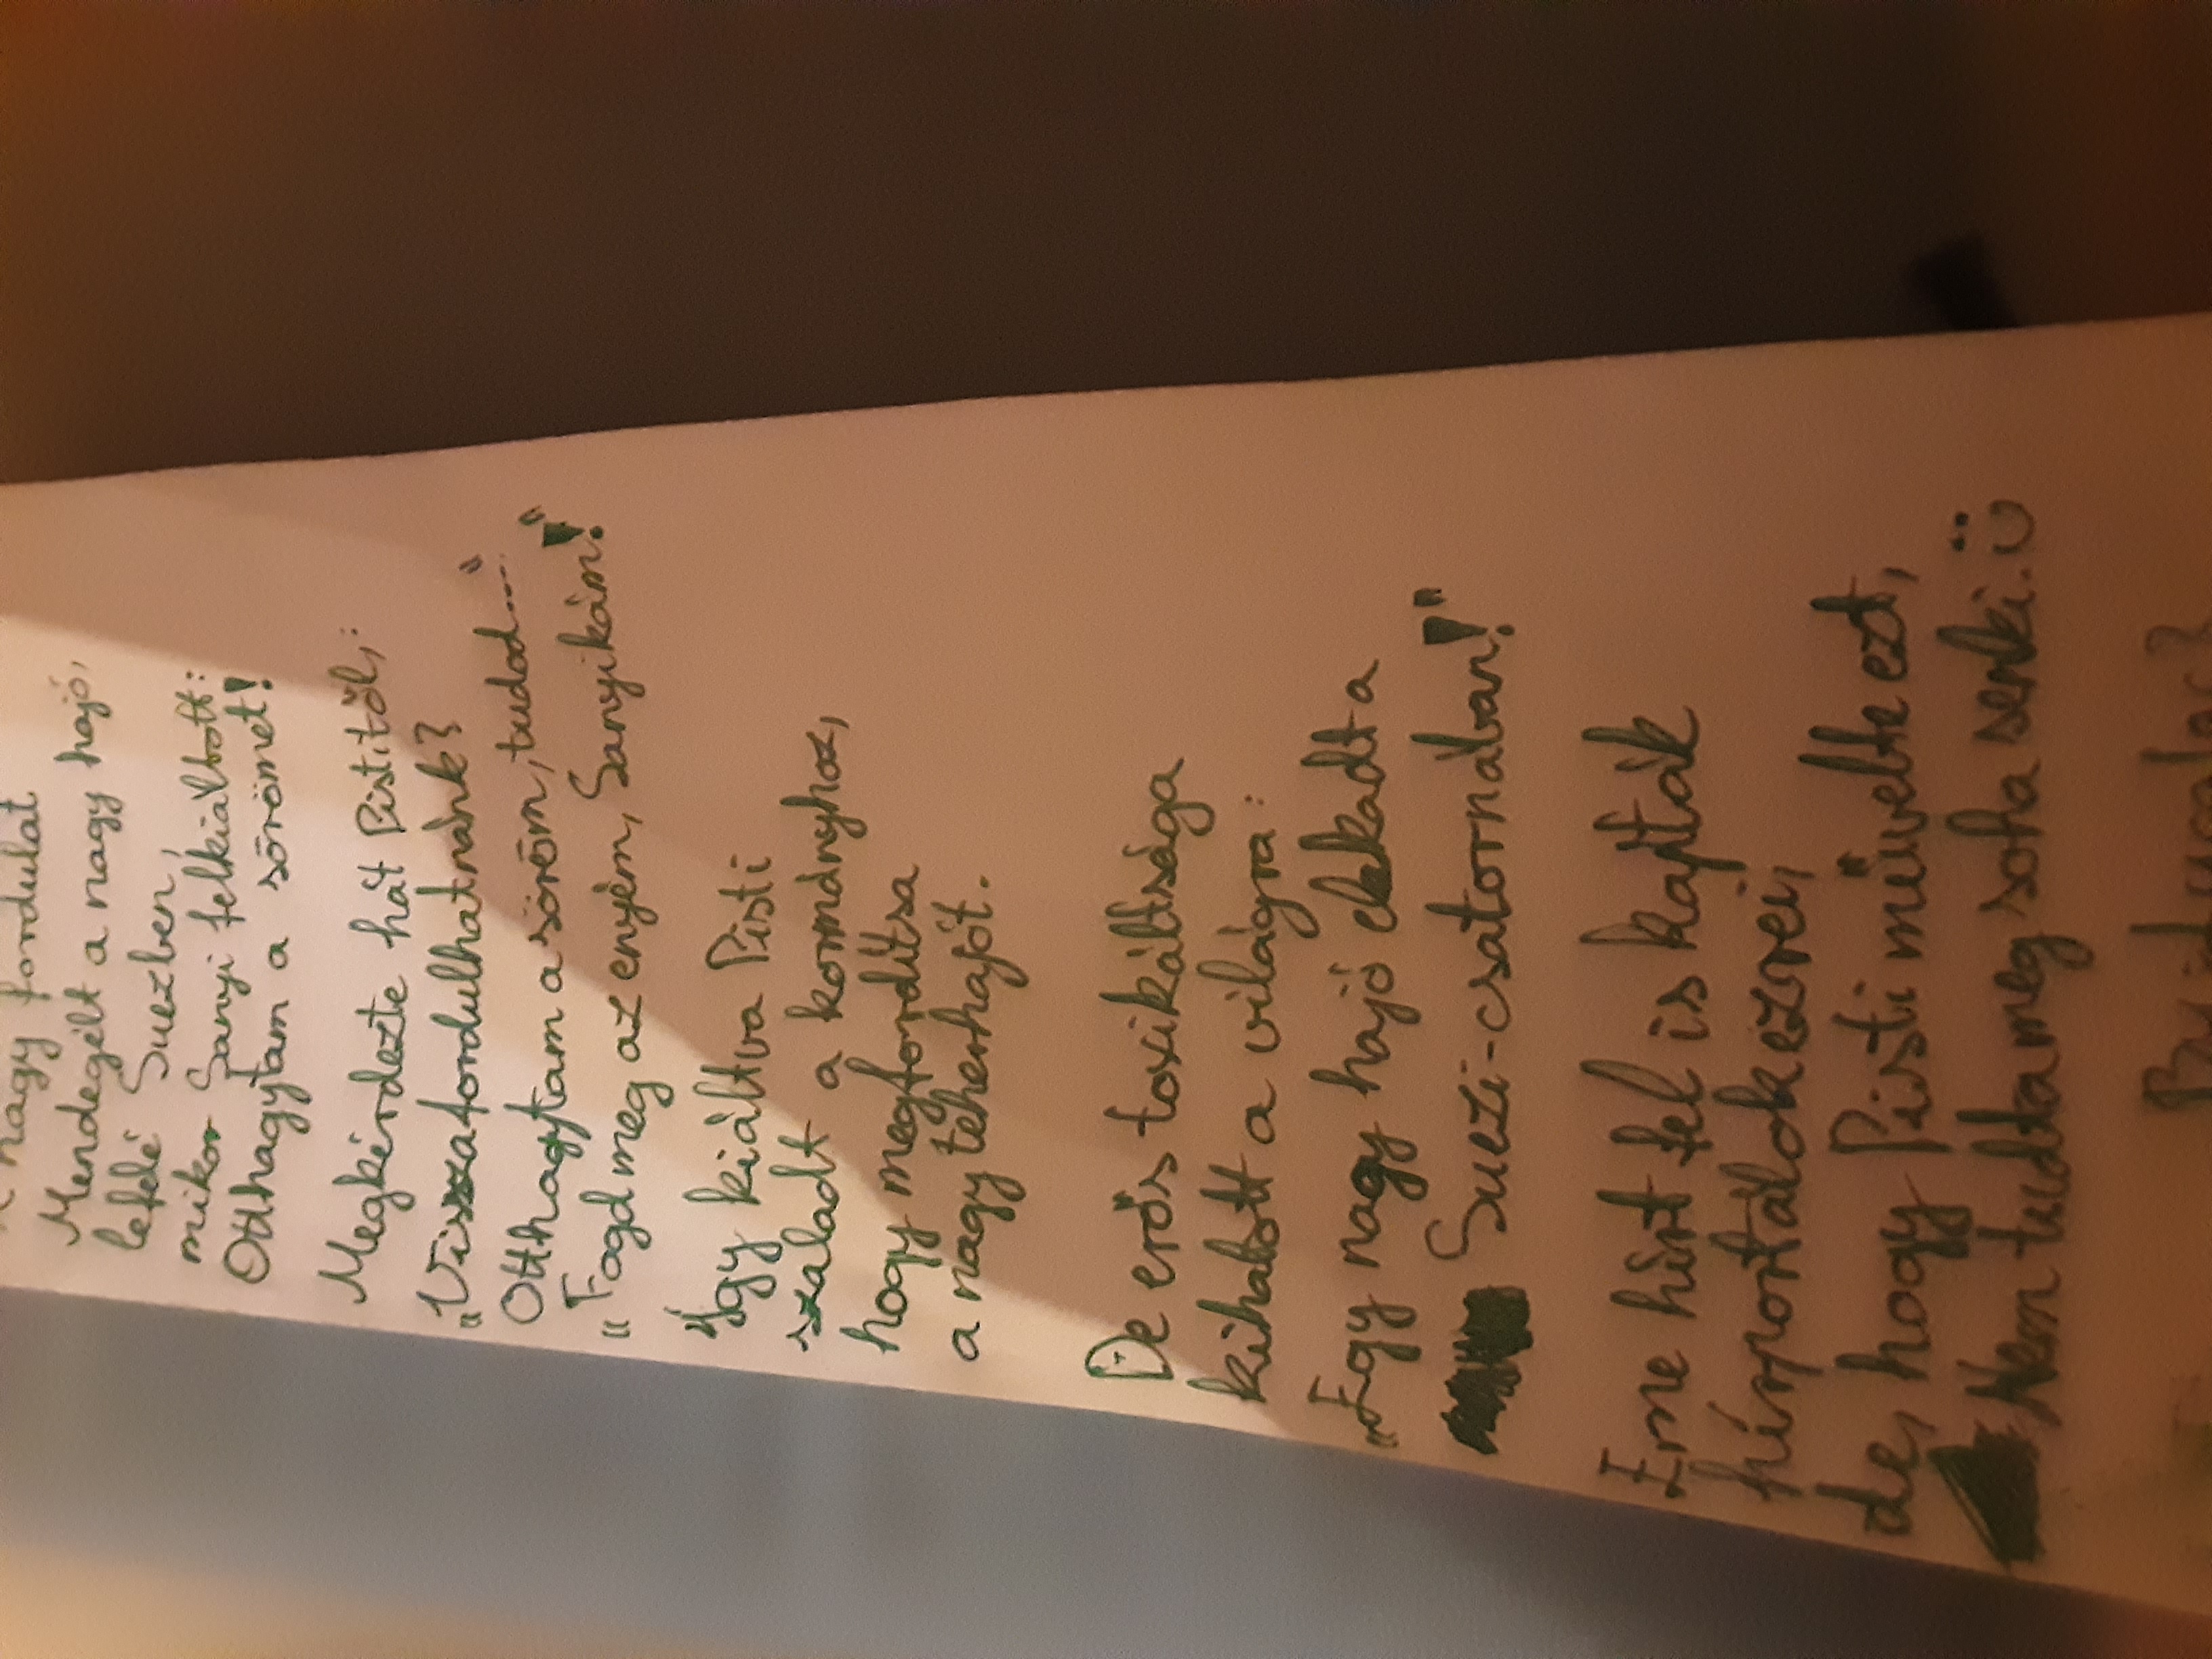 nagy fordulat
Mendegélt a nagy hajó,
lefelé Suezben,
mikor Sanyi felkiáltott:
Otthagytam a sörömet!
Megkérdezte hát Pistitől,:
"Visszafordulhatnánk?
Otthagytam a söröm, tudod..."
"Fogd meg az enyém, Sanyikám!"
Így kiáltva Pisti
szaladt a kormányhoz,
hogy megfordítsa
a nagy teherhajót.
De erős toxikáltsága
kihatott a világra:
"Egy nagy hajó elakadt a
Suezi-csatornában!"
Eme hírt fel is kapták
hírportálok ezrei,
de, hogy Pisti művelte ezt,
Nem tudta meg soha senki. Ü